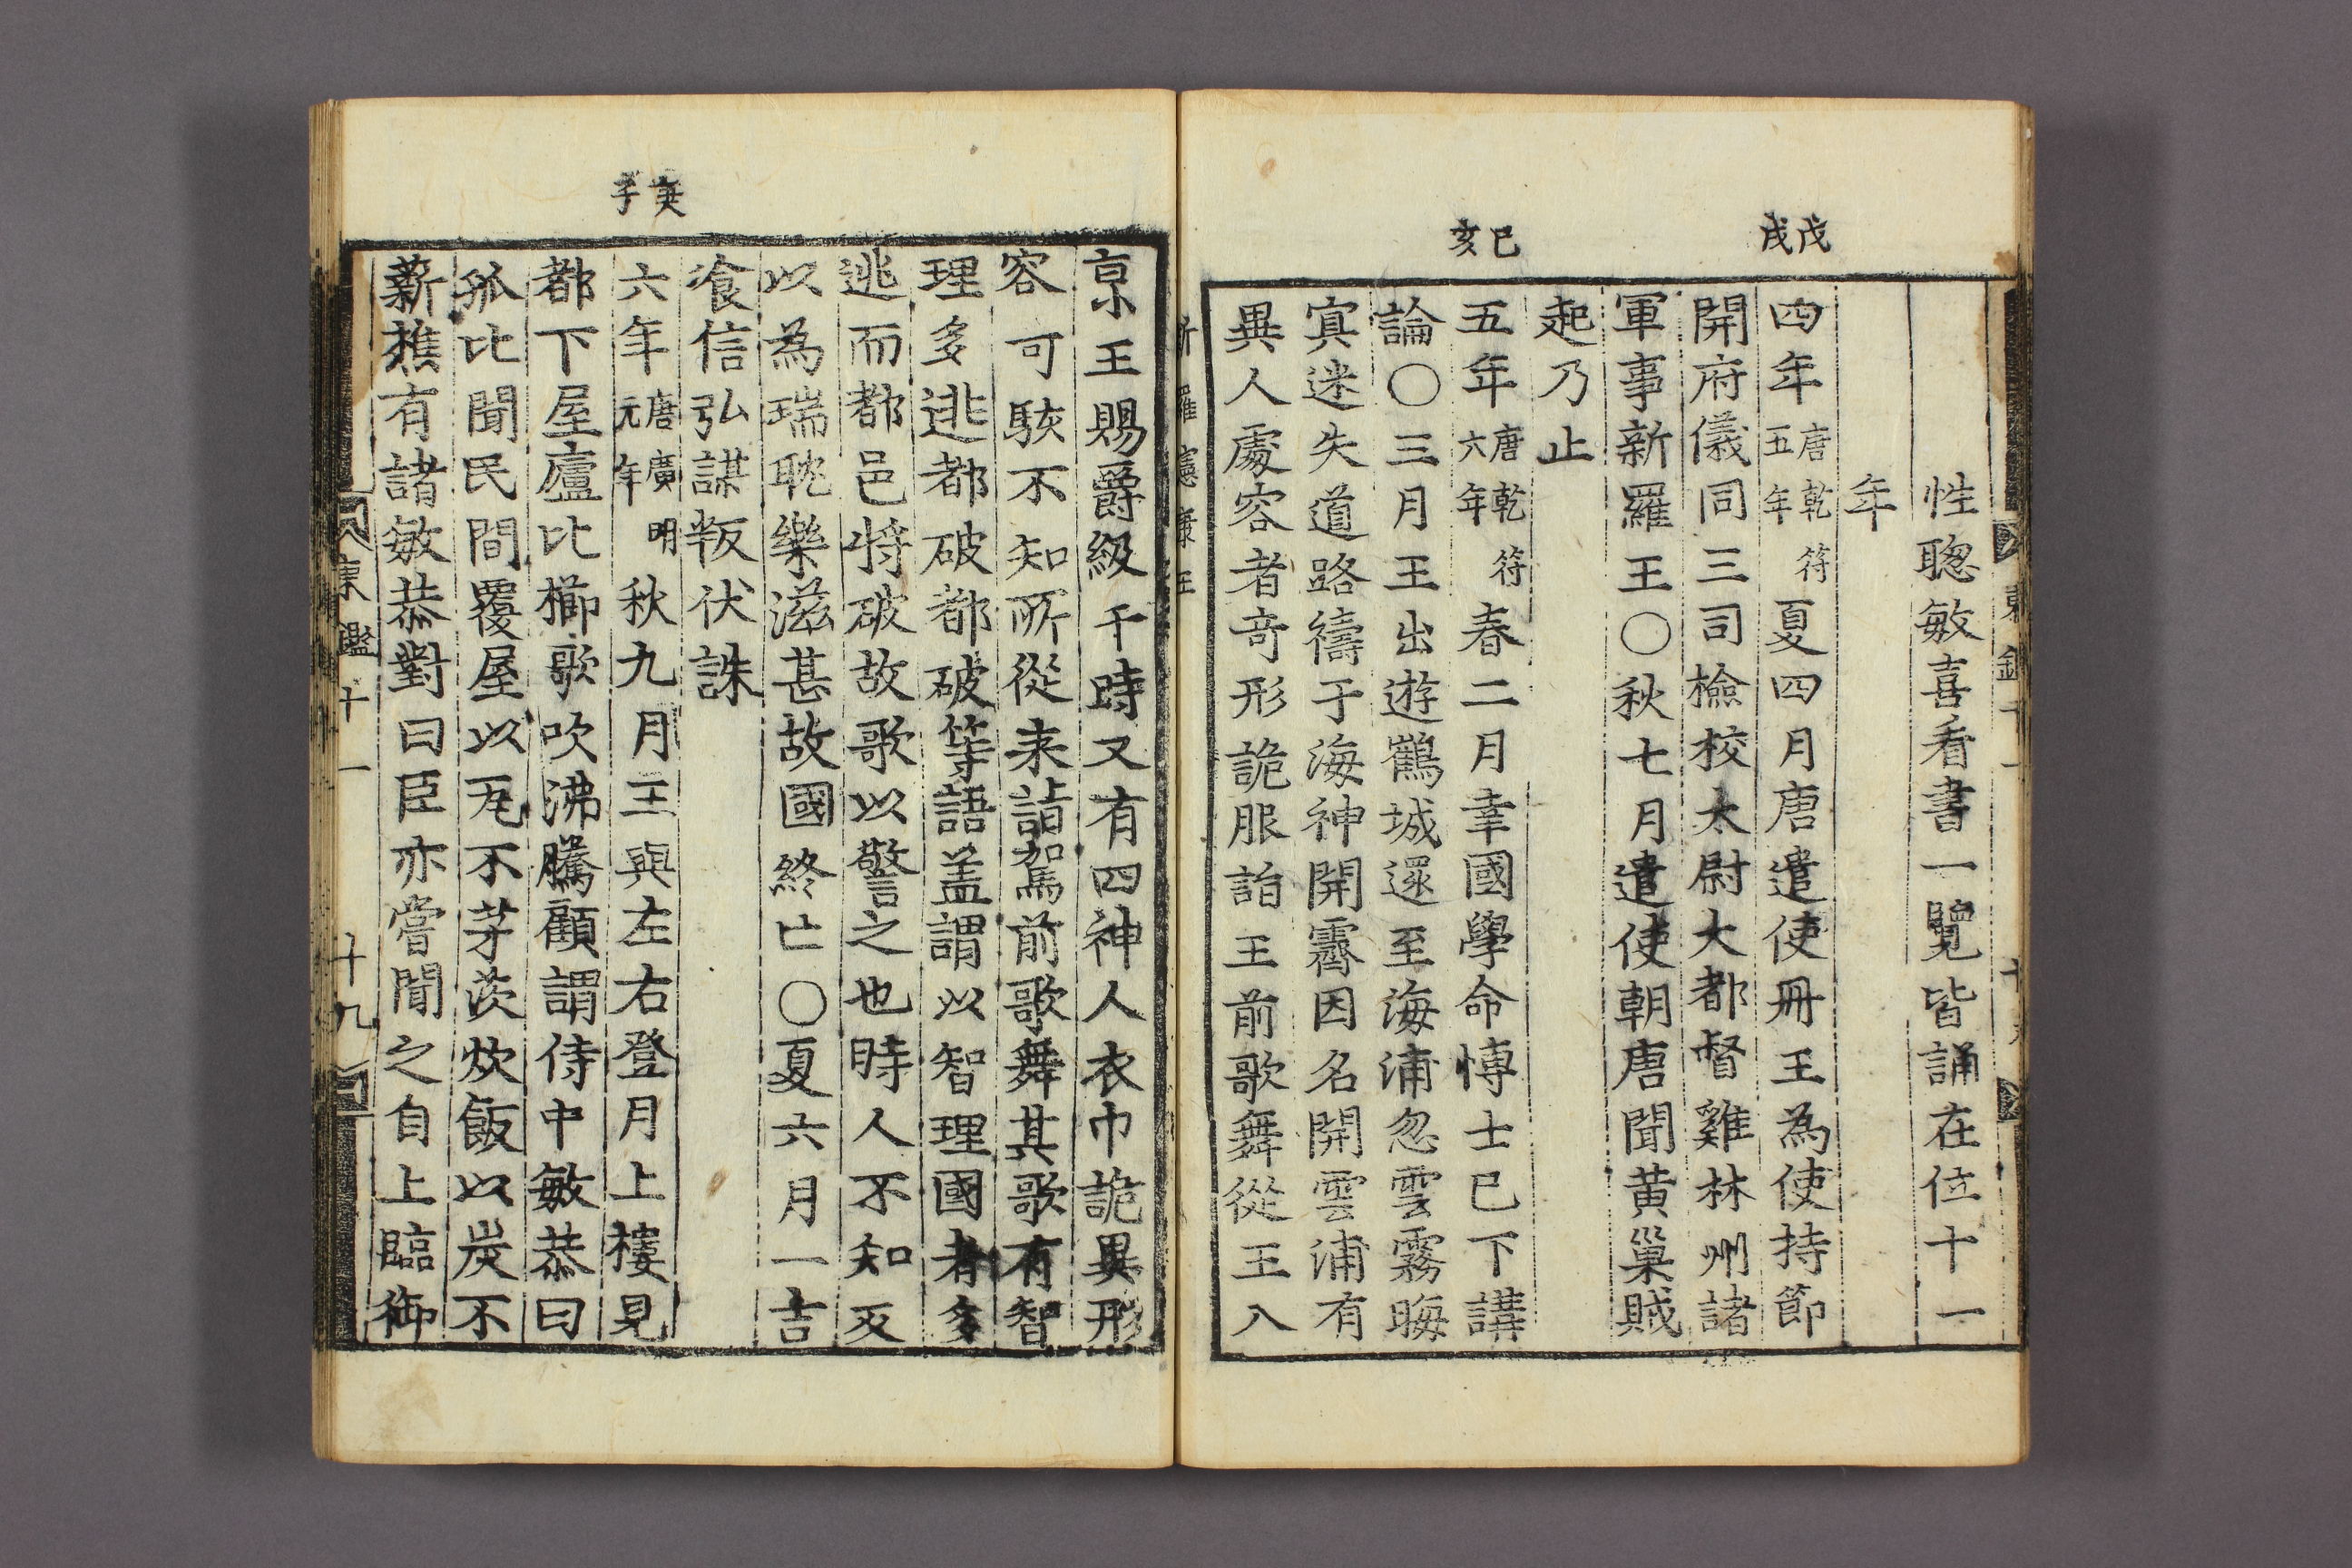 性聰敏喜看書一覽皆誦在位十一
年
戊戌
四年唐乾符五年夏四月唐遣使冊王為使持節
開府儀同三司檢校太尉大都督雞林州諸
軍事新羅王○秋七月遣使朝唐聞黃巢賊
起乃止
己亥
五年唐乾符六年春二月幸國學命博士已下講
論○三月王出遊鶴城還至海浦忽雲霧晦
冥迷失道路禱于海神開霽因名開雲浦有
異人處容者奇形詭服詣王前歌舞從王入
京王賜爵級干時又有四神人衣巾詭異形
容可駭不知所從来詣駕前歌舞其歌有智
理多逃都破都破等語盖謂以智理國者多
逃而都邑將破故歌以警之也時人不知反
以為瑞耽樂滋甚故國終亡○夏六月一吉
飡信弘謀叛伏誅
庚子
六年唐廣明元年秋九月王與左右登月上樓見
都下屋廬比櫛歌吹沸騰顧謂侍中敏恭曰
孤比聞民間覆屋以瓦不茅茨炊飯以炭不
薪樵有諸敏恭對曰臣亦嘗聞之自上臨御
東鑑十一 十九